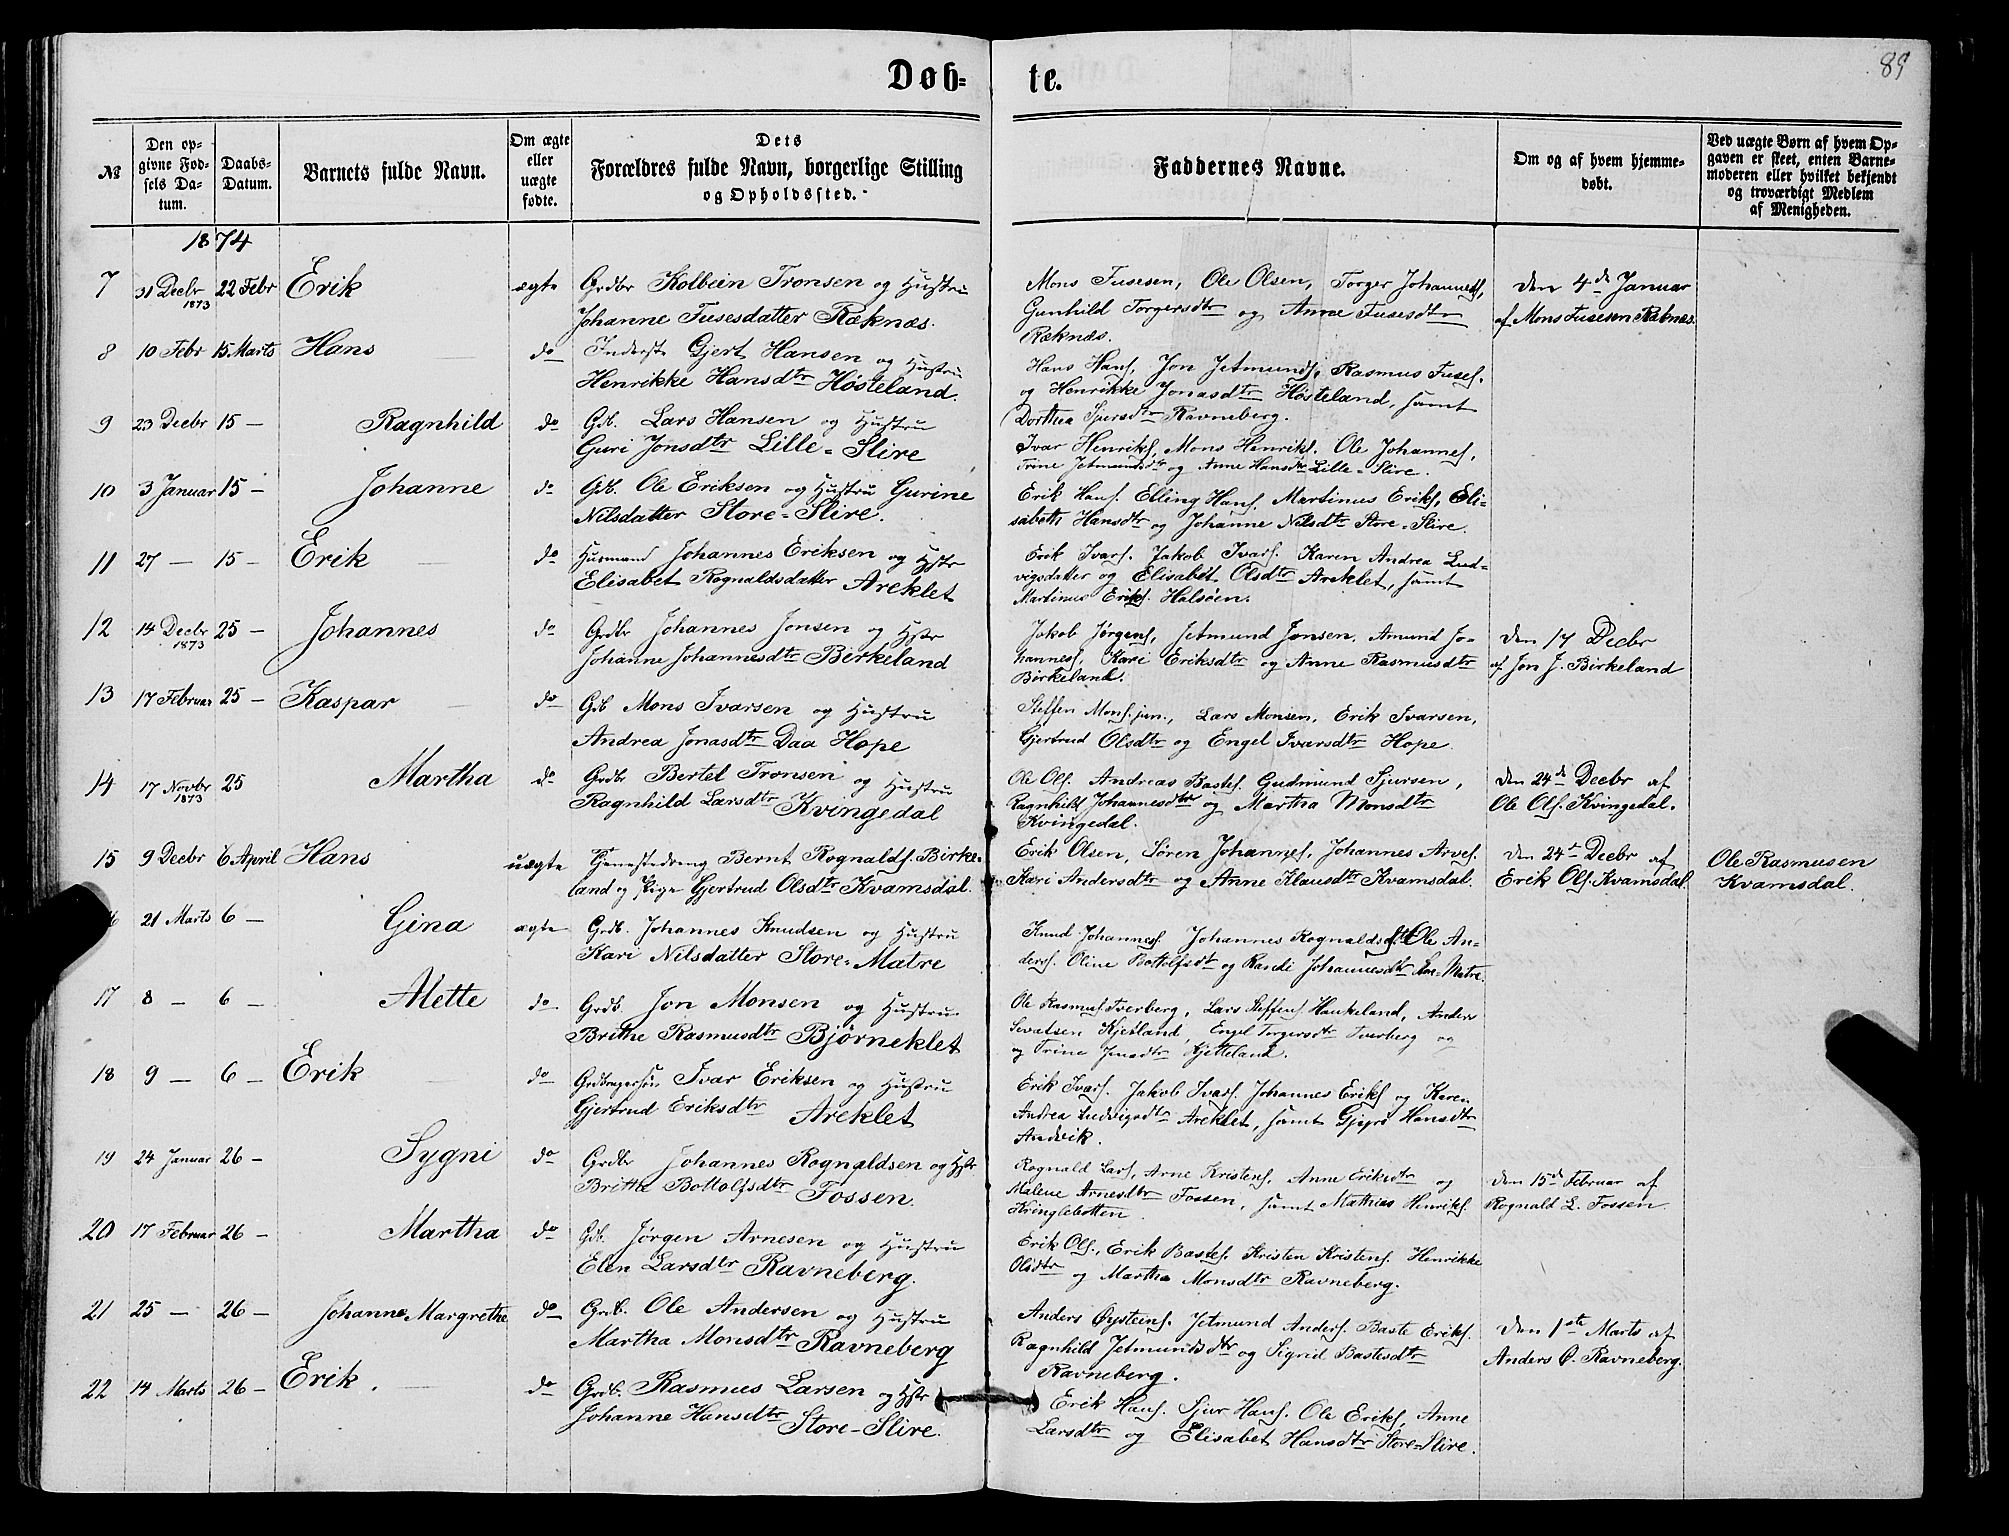 89
Døb-
te.
№
Den op-
givne Fød-
sels Da-
tum.
Daabs-
Datum.
Barnets fulde Navn.
Om ægte
eller
uægte
fødte.
Dets
Forældres fulde Navn, borgerlige Stilling
og Opholdssted.
Faddernes Navne.
Om og af hvem hjemme-
døbt.
Ved uægte Børn af hvem Op-
gaven er skeet, enten Barne-
moderen eller hvilket bekjendt
og troværdigt Medlem
af Menigheden.
1874
7 31 Decbr 1873 22 Febr Erik ægte Grdbr Kolbein Tronsen og Hustru
Johanne Fusesdatter Ræknæs.
Mons Fusesen, Ole Olsen, Torger Johannes.,
Gunhild Torgersdtr og Anne Fusesdtr
Ræknæs.
Den 4de Januar
af Mons Fusesen Ræknæs.
8 10 Febr 15 Marts Hans do Inderste Gjert Hansen og Hustru
Henrikke Hansdtr Høsteland.
Hans Hans., Jon Jetmunds., Rasmus Fuses.
og Henrikke Jonasdtr Høsteland, samt
Dorthea Sjursdtr Ravneberg.
9 23 Decbr 15 — Ragnhild do Gdb. Lars Hansen og Hustru
Guri Jonsdtr Lille-Slire
Ivar Henriks., Mons Henriks. Ole Johannes.,
Trine Jetmundsdtr og Anne Hansdtr Lille-Slire.
10 3 Januar 15 — Johanne do Gdb. Ole Eriksen og Hustru Gurine
Nilsdatter Store-Slire.
Erik Hans. Elling Hans. Martinus Eriks., Eli-
sabeth Hansdtr og Johanne Nilsdtr Store-Slire.
11 27 — 15 — Erik do Husmand Johannes Eriksen og Hstr
Elisabet Rognaldsdatter Areklet
Erik Ivars. Jakob Ivars. Karen Andrea Lud-
vigsdatter og Elisabet Olsdtr Areklet, samt
Martinus Eriks. Halsøen.
12 14 Decbr 1873 25 — Johannes do Grdbr Johannes Jonsen og Hstr
Johanne Johannesdtr Birkeland
Jakob Jørgens., Jetmund Jonsen. Amund Jo-
hannes., Kari Eriksdtr og Anne Rasmusdtr
Birkeland.
Den 17 Decbr
af Jon J. Birkeland
13 17 Februar 25 — Kaspar do Gdb Mons Ivarsen og Hustru
Andrea Jonasdtr Daa Hope
Steffen Mons. jun., Lars Monsen, Erik Ivarsen,
Gjertrud Olsdtr og Engel Ivarsdtr Hope.
14 17 Novbr 1873 25 Martha do Grdbr Bertel Tronsen og Hustru
Ragnhild Larsdtr Kvingedal
Ole Ols. Andreas Bastes. Gudmund Sjursen,
Ragnhild Johannesdtr og Martha Monsdtr
Kvingedal.
Den 24de Decbr af
Ole Ols. Kvingedal.
15 9 Decbr 6 April Hans uægte Tjenestedreng Bernt Rognalds. Birke-
land og Pige Gjertrud Olsdtr Kvamsdal.
Erik Olsen, Søren Johannes., Johannes Arves.
Kari Andersdtr og Anne Klausdtr Kvamsdal.
Den 24de Decbr af
Erik Ols. Kvamsdal.
Ole Rasmusen
Kvamsdal.
21 Marts 6 — Gina ægte Grdb. Johannes Knudsen og Hustru
Kari Nilsdatter Store-Matre
Knud Johannes. Johannes Rognalds. Ole An-
ders. Oline Bottolfsdtr og Randi Johannesdtr Matre.
17 8 — 6 — Mette do Grdb. Jon Monsen og Hustru
Brithe Rasmusdtr Bjørneklet
Ole Rasmus. Tverberg, Lars Steffens. Haukeland, Anders
Kjetland, Engel Torgersdtr Tverberg og
og Trine Jensdtr Kjetteland.
18 9 — 6 — Erik do Grdbrugersøn Ivar Eriksen og Hustru
Gjertrud Eriksdtr Areklet
Erik Ivars. Jakob Ivars. Johannes Eriks. og Karen
Andrea Ludvigsdtr Areklet, samt Hansdtr
Andvik.
19 24 Januar 26 — Sygni do Grdbr Johannes Rognaldsen og Hstr
Britha Bottolfsdtr Fossen.
Rognald Lars. Arne Kristens. Anne Eriksdtr og
Malene Arnesdtr Fossen, samt Mathias Henriks.
Kringlebotten.
Den 15de Februar af
Rognald L. Fossen
20 17 Februar 26 — Martha do Gdb. Jørgen Arnesen og Hustru
Elen Larsdtr Ravneberg.
Erik Ols., Erik Bastes. Kristen Kristens. Henrikke
Olsdtr og Martha Monsdtr Ravneberg.
21 25 — 26 — Johanne Margrethe do Grdb. Ole Andersen og Hustru
Martha Monsdtr Ravneberg
Anders Øysteins. Jetmund Anders. Baste Eriks.
Ragnhild Jetmundsdtr og Sigrid Bastesdtr
Ravneberg.
Den 1ste Marts af
Anders Ø. Ravneberg.
22 14 Marts 26 — Erik. do Grdb. Rasmus Larsen og Hstr
Johanne Hansdtr Store-Slire.
Erik Hans. Sjur Hans. Ole Eriks. Anne
Larsdtr og Elisabet Hansdtr Store-Slire.